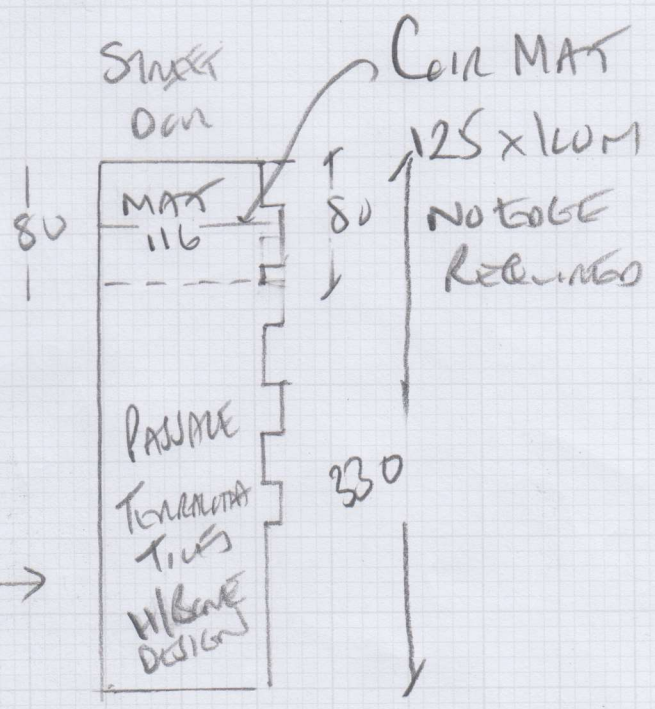 STREET
DOOR
COIR MAT
125 x 100M
NO EDGE
REQUIRED
80
MAT
116
80
330
PASSAGE
TERRACOTTA
TILES
H/BONE
DESIGN